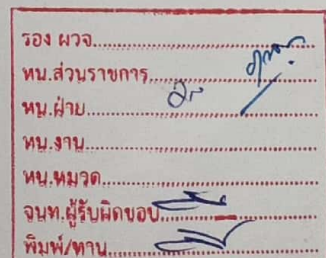 รอง ผวจ.
หน.ส่วนราชการ
หน.ฝ่าย
หน.งาน
หน.หมวด
จนท.ผู้รับผิดชอบ
พิมพ์/ทาน